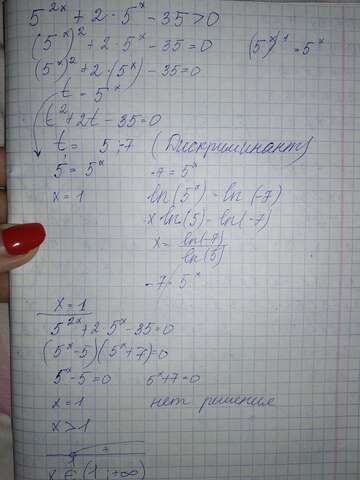 5^{2x} + 2 · 5^x - 35 > 0
(5^x)^2 + 2 · 5^x - 35 = 0 (5^x)^1 = 5^x
(5^x)^2 + 2 · (5^x) - 35 = 0
t = 5^x
t^2 + 2t - 35 = 0
t = 5; -7 (Дискриминант)
5 = 5^x -7 = 5^x
x = 1 ln(5^x) = ln(-7)
x · ln(5) = ln(-7)
x = ln(-7)/ln(5)
-7 = 5^x
x = 1
5^{2x} + 2 · 5^x - 35 = 0
(5^x - 5)(5^x + 7) = 0
5^x - 5 = 0 5^x + 7 = 0
x = 1 нет решения
x > 1
+
x ∈ (1; +∞)